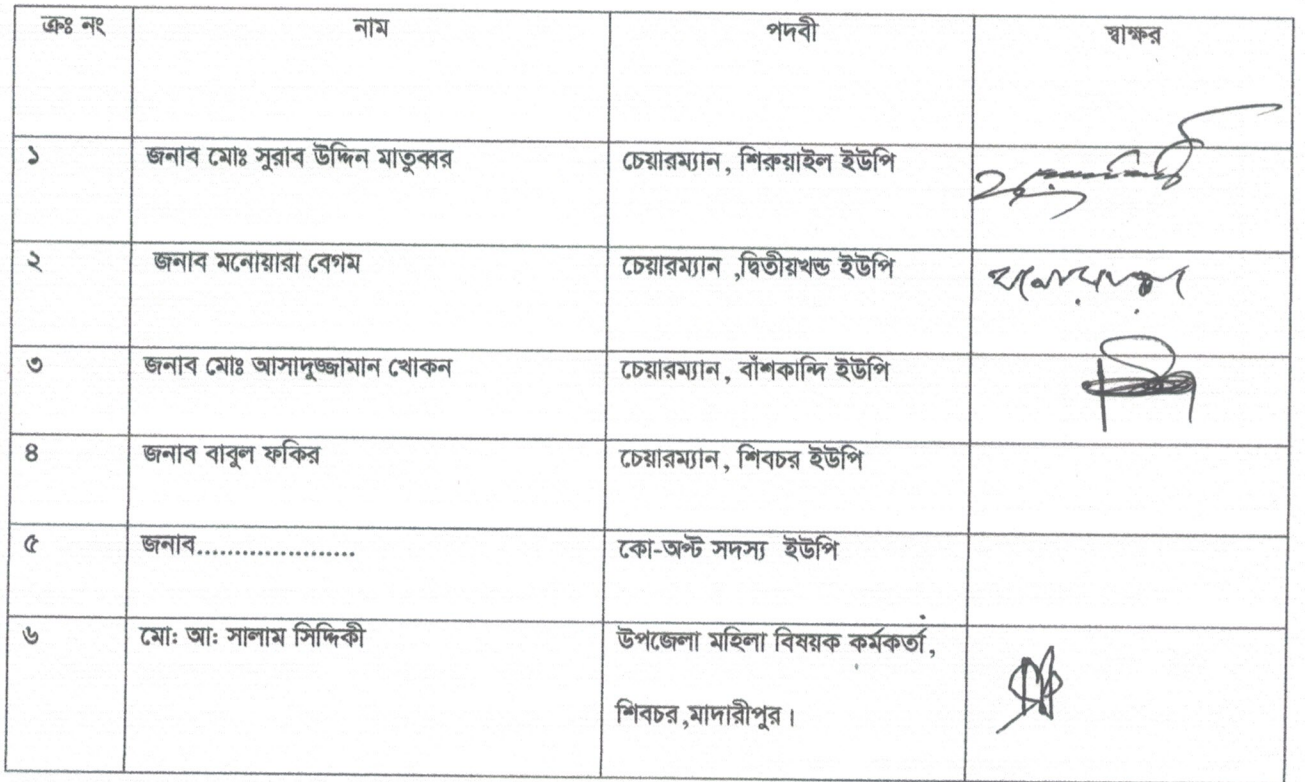 ক্রঃ নং নাম পদবী স্বাক্ষর
১ জনাব মোঃ সুরাব উদ্দিন মাতুব্বর চেয়ারম্যান, শিরুয়াইল ইউপি
২ জনাব মনোয়ারা বেগম চেয়ারম্যান ,দ্বিতীয়খন্ড ইউপি মনোয়ারা
৩ জনাব মোঃ আসাদুজ্জামান খোকন চেয়ারম্যান, বাঁশকান্দি ইউপি
৪ জনাব বাবুল ফকির চেয়ারম্যান, শিবচর ইউপি
৫ জনাব..................... কো-অপ্ট সদস্য ইউপি
৬ মো: আ: সালাম সিদ্দিকী উপজেলা মহিলা বিষয়ক কর্মকর্তা,
শিবচর,মাদারীপুর।